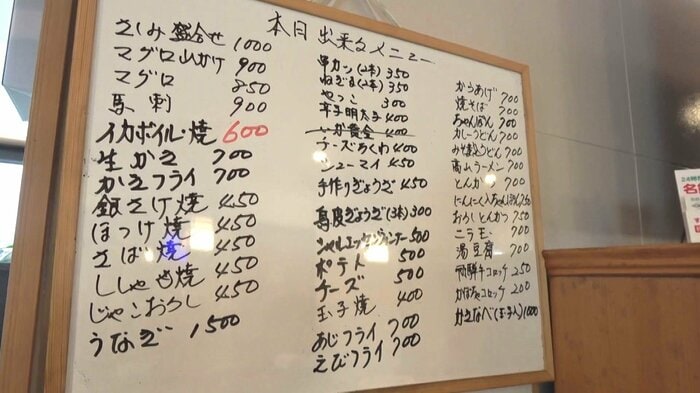 本日出来るメニュー
さしみ盛合せ 1000
マグロ山かけ 900
マグロ 850
馬刺 900
イカボイル・焼 600
生かき 700
かきフライ 700
銀さけ焼 450
ほっけ焼 450
さば焼 450
ししゃも焼 450
じゃこおろし 450
うなぎ 1500
串カツ(2本) 350
ねぎま(2本) 350
やっこ 300
辛子明太子 400
いか黄金 400
チーズちくわ 400
シューマイ 450
手作りぎょうざ 450
鳥皮ぎょうざ(3本) 300
シャルエッセンウィンナー 500
ポテト 500
チーズ 500
玉子焼 400
あじフライ 700
えびフライ 700
からあげ 700
焼そば 700
ちゃんぽん 700
カレーうどん 700
みそ煮込うどん 700
高山ラーメン 700
とんかつ 700
にんにく入ちゃんぽん 750
おろしとんかつ 750
ニラ玉 700
湯豆腐 700
飛騨牛コロッケ 250
かぼちゃコロッケ 200
かきなべ(玉子入) 1000